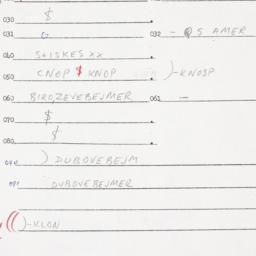 030 $
031 032 - S AMER
040 STISKES XX
050 CNOP $ KNOP )-KNOSP
060 BIROZEVEBEJMER 061 -
070 $
080 $
) DUBOVEBEJM
091 DUBOVEBEJMER
( ( )-KLON